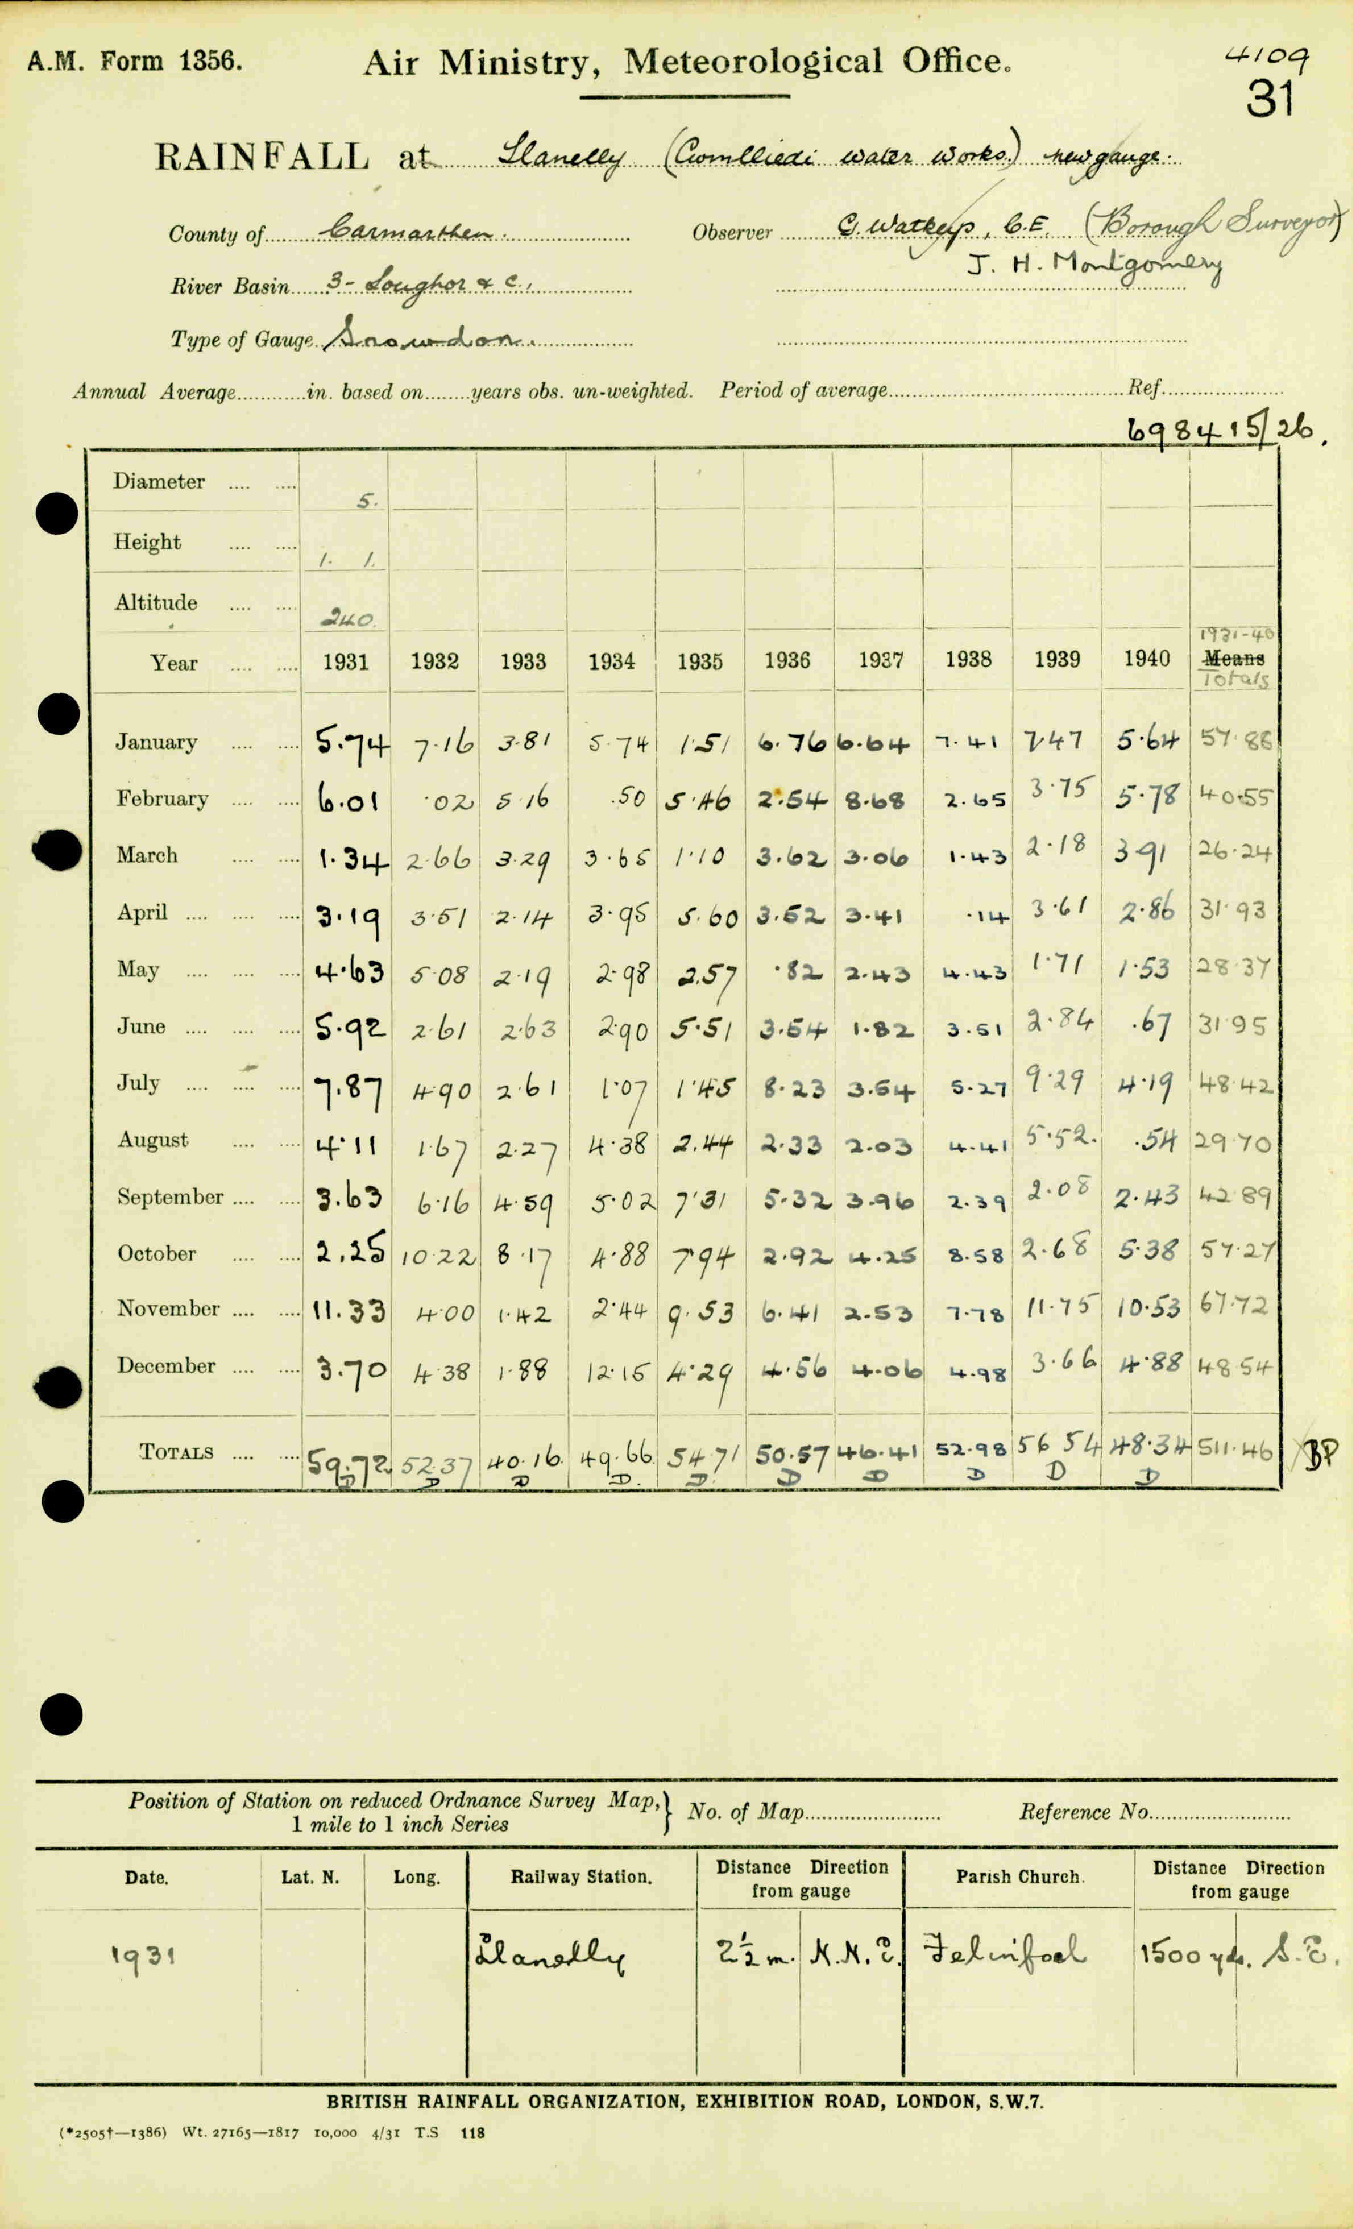 A.M. Form 1356. Air Ministry, Meteorological Office. 4109
31
RAINFALL at Llanelly (Cwmlliedi Water Works) new gauge.
County of Carmarthen. Observer G. Watkeys, C.E. (Borough Surveyor)
J. H. Montgomery
River Basin 3- Loughor & c.
Type of Gauge Snowdon.
Annual Average in. based on years obs. un-weighted. Period of average Ref.
698415/26.
Diameter 5.
Height 1. 1.
Altitude 240
1931-40
Year 1931 1932 1933 1934 1935 1936 1937 1938 1939 1940 Means
Totals
January 5.74 7.16 3.81 5.74 1.51 6.76 6.64 7.41 7.47 5.64 57.88
February 6.01 .02 5.16 .50 5.46 2.54 8.68 2.65 3.75 5.78 40.55
March 1.34 2.66 3.29 3.65 1.10 3.62 3.06 1.43 2.18 3.91 26.24
April 3.19 3.51 2.14 3.95 5.60 3.52 3.41 .14 3.61 2.86 31.93
May 4.63 5.08 2.19 2.98 2.57 .82 2.43 4.43 1.71 1.53 28.37
June 5.92 2.61 2.63 2.90 5.51 3.54 1.82 3.51 2.84 .67 31.95
July 7.87 4.90 2.61 1.07 1.45 8.23 3.54 5.27 9.29 4.19 48.42
August 4.11 1.67 2.27 4.38 2.44 2.33 2.03 4.41 5.52. .54 29.70
September 3.63 6.16 4.59 5.02 7.31 5.32 3.96 2.39 2.08 2.43 42.89
October 2.25 10.22 8.17 4.88 7.94 2.92 4.25 8.58 2.68 5.38 57.27
November 11.33 4.00 1.42 2.44 9.53 6.41 2.53 7.78 11.75 10.53 67.72
December 3.70 4.38 1.88 12.15 4.29 4.56 4.06 4.98 3.66 4.88 48.54
TOTALS 59.72 52.37 40.16 49.66 54.71 50.57 46.41 52.98 56.54 48.34 511.46 BP
D D D D D D D D D D
Position of Station on reduced Ordnance Survey Map,} No. of Map Reference No.
1 mile to 1 inch Series
Date. Lat. N. Long. Railway Station. Distance Direction from gauge Parish Church. Distance Direction from gauge
1931 Llanelly 2½ m. N.N.E. Felinfoel 1500 yds. S.E.
BRITISH RAINFALL ORGANIZATION, EXHIBITION ROAD, LONDON, S.W.7.
(*2505†—1386) Wt. 27165—1817 10,000 4/31 T.S 118